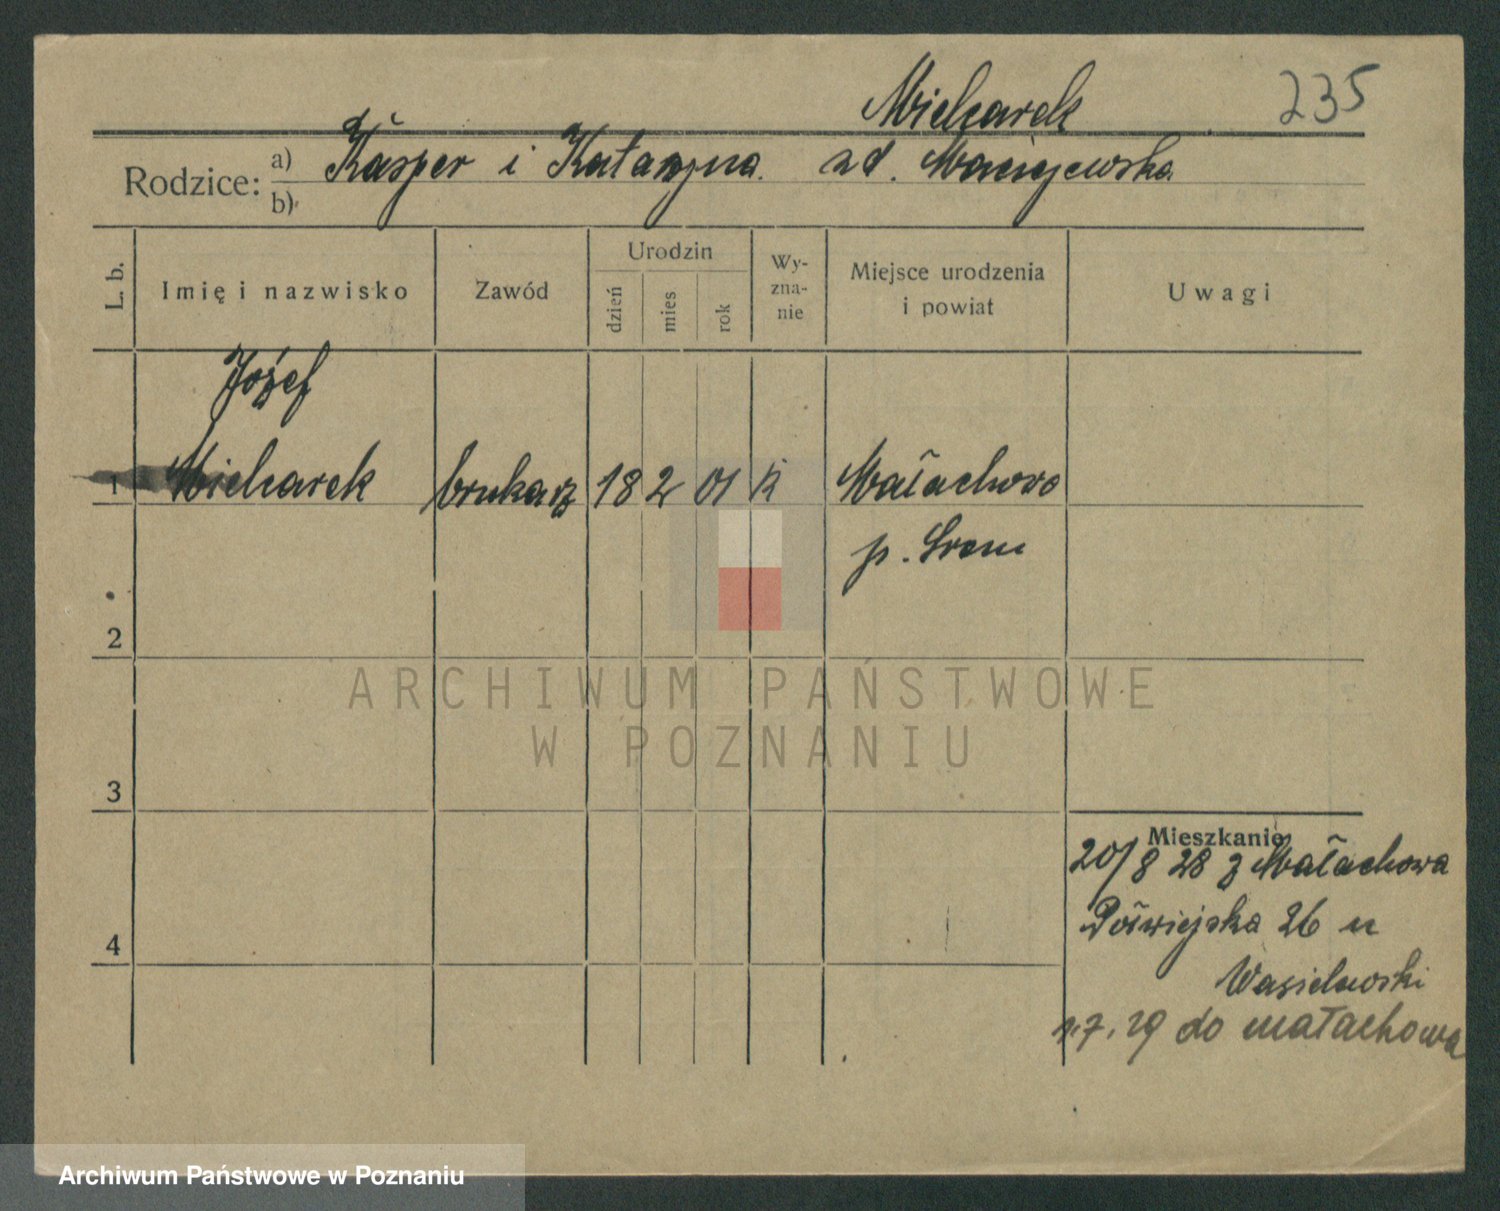 Mielcarek 235
Rodzice: a) Kasper i Katarzyna zd. Maciejewska
b)
L. b. Imię i nazwisko Zawód Urodzin dzień mies rok Wy-zna-nie Miejsce urodzenia i powiat Uwagi
Józef
1 Mielcarek brukarz 18 2 01 k Małachowo
p. Śrem
2
3
Mieszkanie
20/8 28 z Małachowa
4 Doświejska 26 u
Wasielewski
1.7.29 do Małachowa
ARCHIWUM PAŃSTWOWE
W POZNANIU
Archiwum Państwowe w Poznaniu